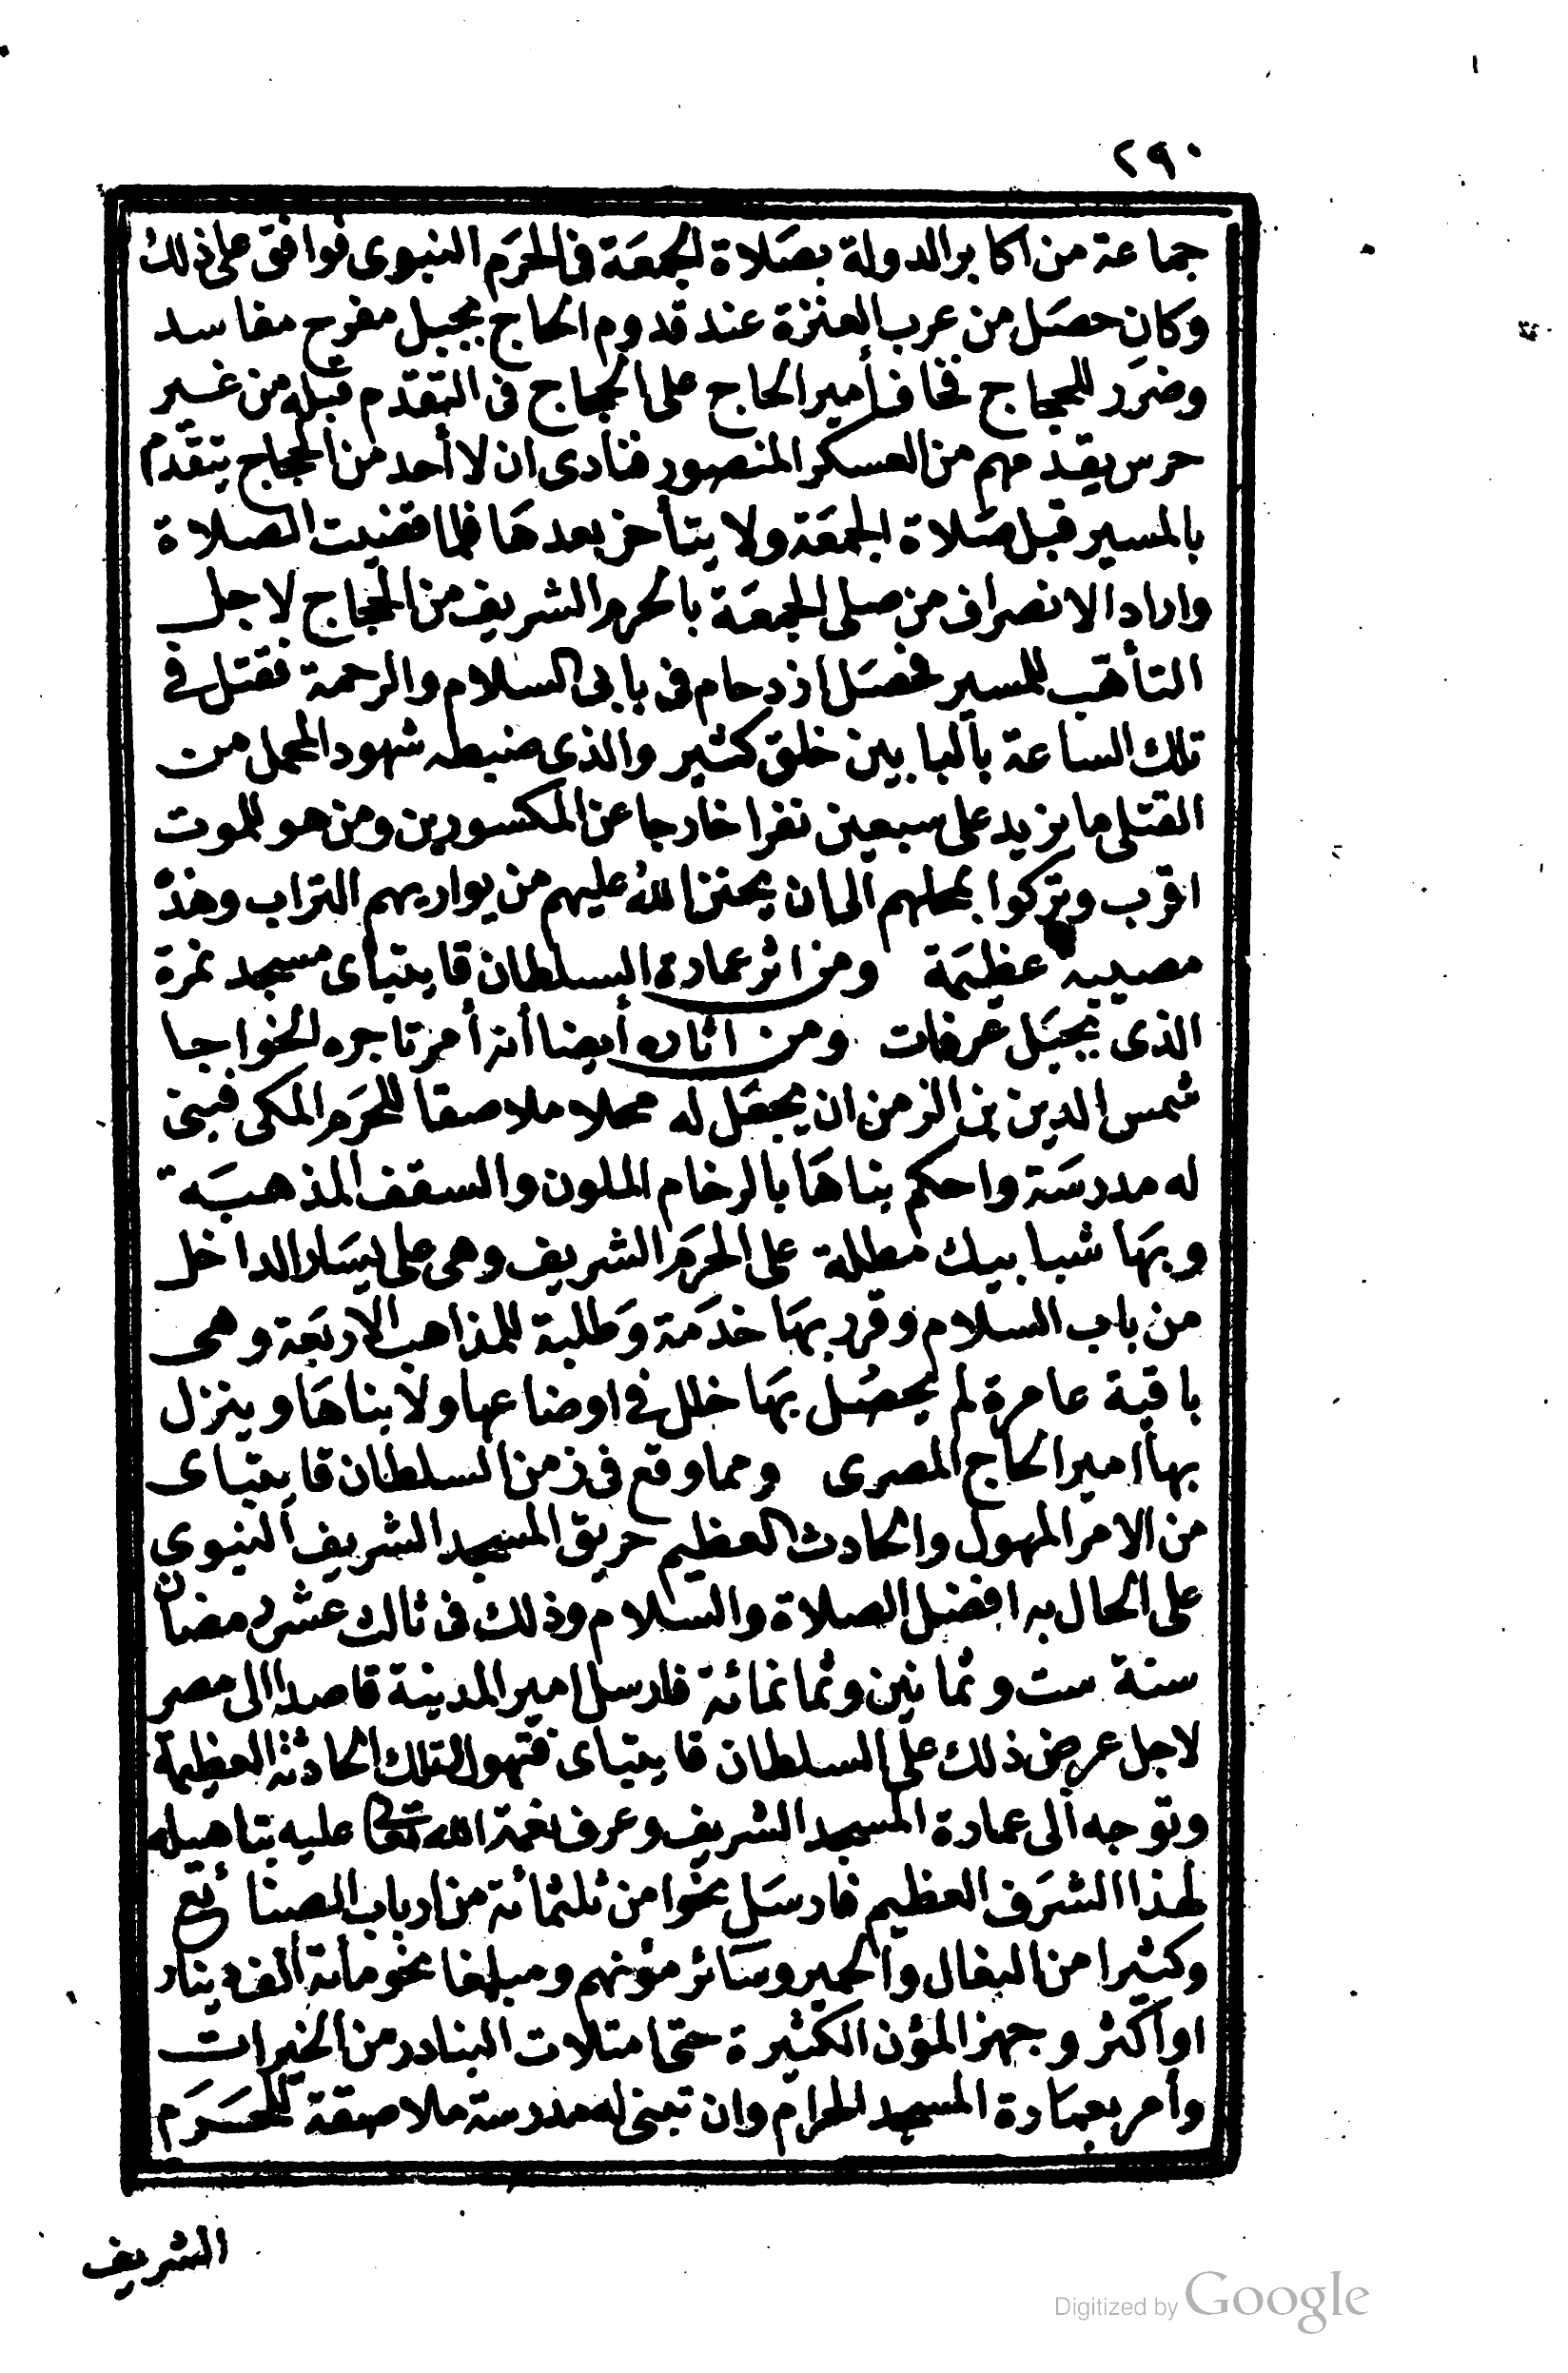 ٢٩٠
جماعة من اكابر الدولة بصَلاة الجمعَة فى الحرَم النبوى فوافق على ذلك
وكان حصَل من عرب العنزة عند قدوم الحاج بجبل مفرح مفاسد
وضرَر للحجاج فخاف أمير الحاج على الحجاج فى التقدم قبله من غير
حرس يقدمهم من العسكر المنصور فنادى ان لا أحد من الحجاج يتقدم
بالمسير قبل صَلاة الجمعَة ولا يتأخر بعدهَا فلما قضيت الصلاة
واراد الانصراف من صلى الجمعَة بالحرم الشريف من الحجاج لاجل
التأهب للمسير فحصَل ازدحام فى بابى السلام والرحمة فقتل فى
تلك الساعة بالبابين خلق كثير والذى ضبطه شهود المحمل من
القتلى ما يزيد على سبعين نفرا خارجا عن المكسورين ومن هو للموت
اقرب وتركوا بمحلهم الى ان يحنن الله عليهم من يواريهم التراب وهذه
مصيبة عظيمَة ومن اثر عمارة السلطان قايتباى مسجد نمرة
الذى بجبَل عرفات ومن اثاره أيضا أنه أمر تاجره الخواجا
شمس الدين بن الزمن ان يجعَل له محلا ملاصقا للحرَم المكى فبنى
له مدرسَة واحكم بناهَا بالرخام الملون والسقف المذهبَة
وبهَا شبابيك مطلة على الحرَم الشريف وهى على يسَار الداخل
من باب السلام وقرر بهَا خدَمَة وَطلبة للمذاهب الاربَعة وهى
باقية عامرة لم يحصُل بهَا خلل فى اوضاعها ولا بناهَا وينزل
بها امير الحاج المصرى ومما وقع فى زمن السلطان قايتباى
من الامر المهول والحادث العظيم حريق المسجد الشريف النبوى
على الحال به افضل الصلاة والسلام وذلك فى ثالث عشر رمضان
سنة ست وثمانين وثمانمائة فارسل امير المدينة قاصدا الى مصر
لاجل عرض ذلك على السلطان قايتباى فتهول لتلك الحادثة العظيمة
وتوجه الى عمارة المسجد الشريف وعرف نعمة الله تعالى عليه بتاهيله
لهذا الشرَف العظيم فارسَل نحوا من ثلثمائة من ارباب الصنائع
وكثيرا من البغال والحمير وسَائر مؤنهم ومبلغا نحو مائة ألف دينار
او أكثر وجهز المؤن الكثيرة حتى امتلات البنادر من الخيرات
وأمر بعمَارة المسجد الحرام وان تبنى له مدرسة ملاصقة للحَرَم
الشريف
Digitized by Google